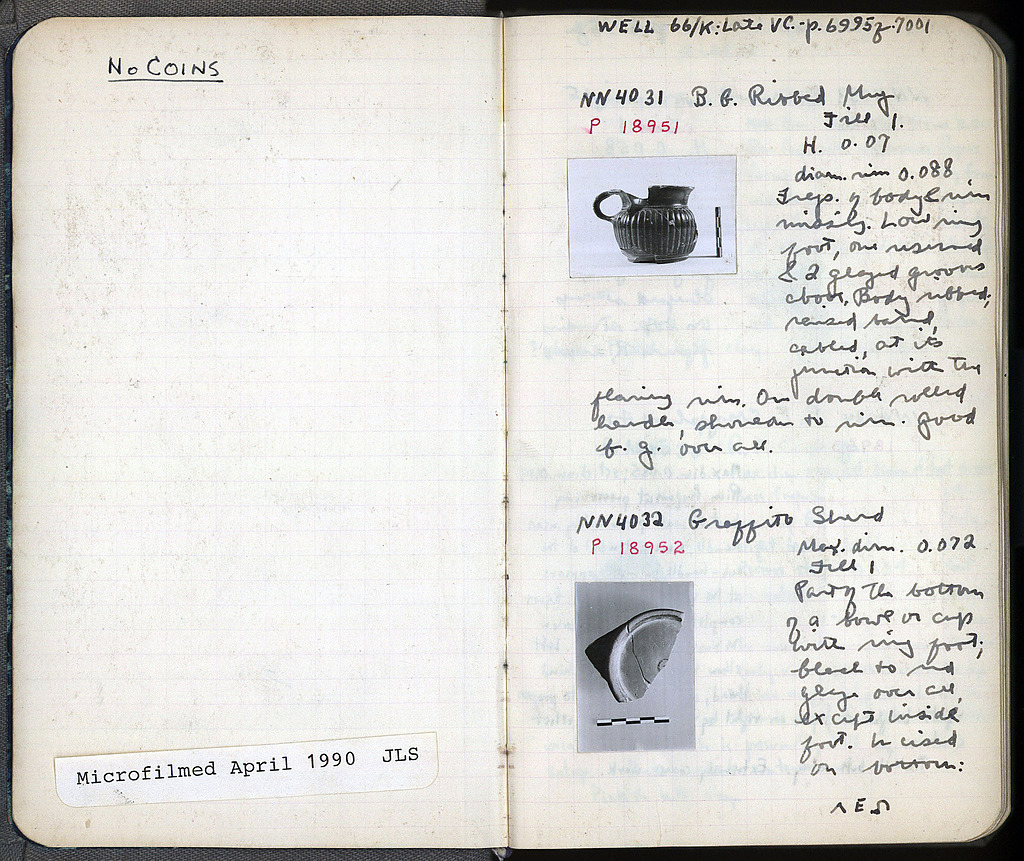 No COINS
Microfilmed April 1990 JLS
WELL 66/K: Late VC.-p. 6995 7001
NN4031 B. G. Ribbed Mug
P 18951
Fill 1.
H. 0.07
diam. rim 0.088
Frgs. of body & rim
missing. Low ring
foot, one reserved
& 2 glazed grooves
above. Body ribbed;
raised band,
cabled, at its
junction with the
flaring rim. One double rolled
handle, shoulder to rim. Good
b. g. over all.
NN4032 Graffito Sherd
P 18952
Max. dim. 0.072
Fill 1
Part of the bottom
of a bowl or cup
with ring foot;
black to red
glaze over all,
except inside
foot. Incised
on bottom:
ΛΕΩ